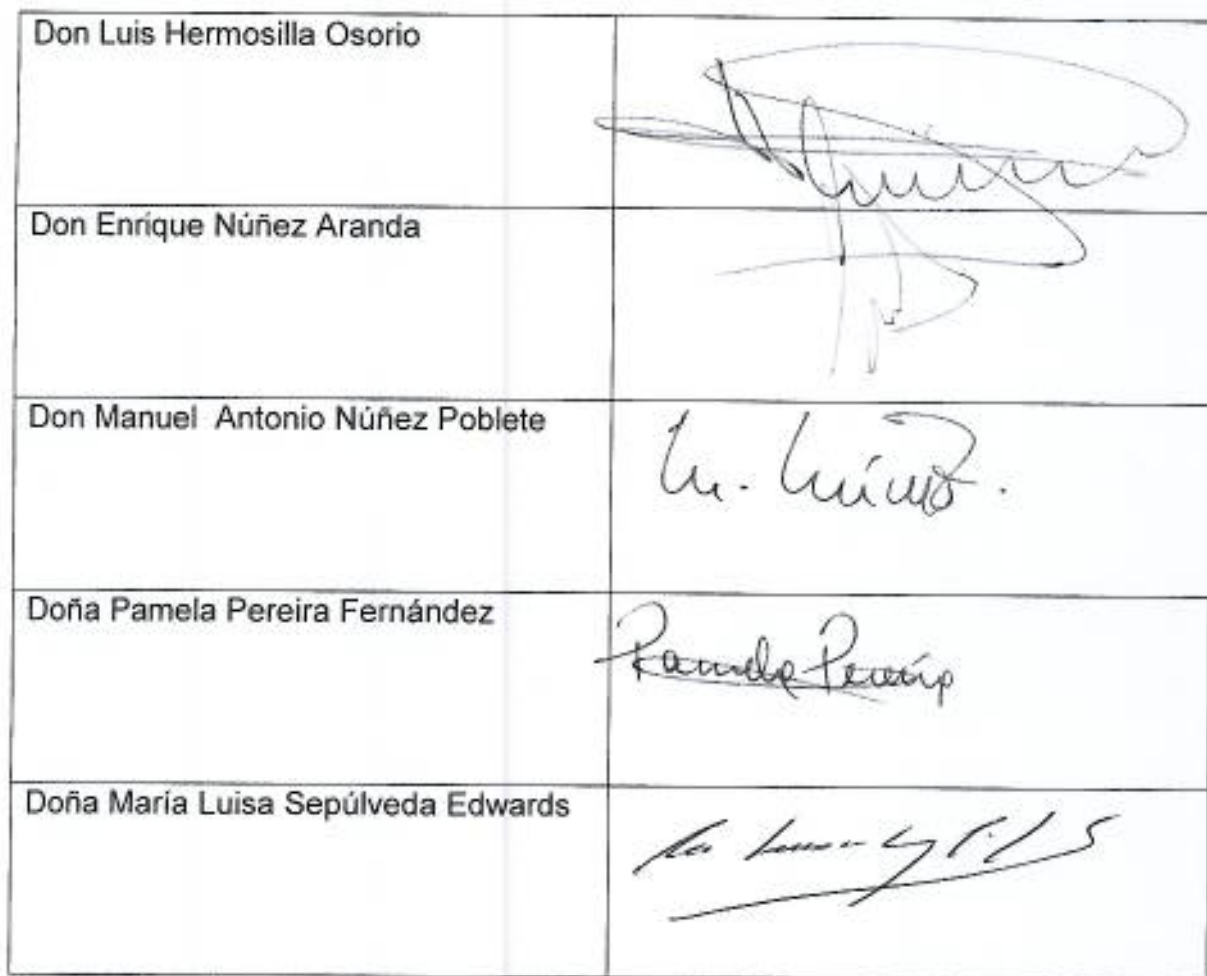 Don Luis Hermosilla Osorio
Don Enrique Núñez Aranda
Don Manuel Antonio Núñez Poblete
M. Núñez.
Doña Pamela Pereira Fernández
Pamela Pereira
Doña María Luisa Sepúlveda Edwards